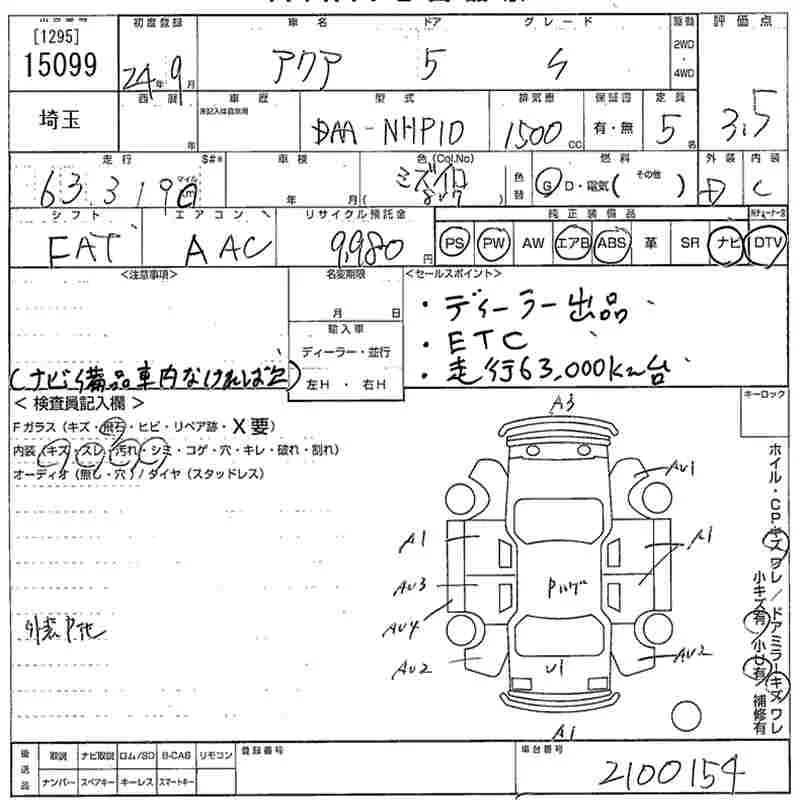 [1295]
15099
初度登録 車名 ドア グレード 駆動 評価点
24年9月 アクア 5 S 2WD・4WD 3.5
埼玉
西暦 車歴 型式 排気量 保証書 定員
年 DAA-NHP10 1500cc 有・無 5名
走行 S#* 車検 色(Col.No) 色替 燃料 外装 内装
63,319 マイル km 年 月 ( ミズイロ ) G D・電気 ( その他 ) D C
シフト エアコン リサイクル預託金 純正装備品
FAT AAC 9,980円 PS PW AW エアB ABS 革 SR ナビ DTV
<注意事項> 名変期限 <セールスポイント>
月 日 ・ディーラー出品
輸入車 ・ETC
ディーラー・並行 ・走行63,000km台
(ナビ備品車内なければ欠) 左H・右H
<検査員記入欄> キーロック
Fガラス(キズ・飛石・ヒビ・リペア跡・X要)
内装(キズ・スレ・汚れ・シミ・コゲ・穴・キレ・破れ・割れ)
オーディオ(無し・穴)/タイヤ(スタッドレス)
A3
AU1
A1 A1
AU3
AU4
AU2 U1 AU2
A1
ホイル・CPキズワレ/ドアミラーキズワレ
小キズ有/小U有/補修有
後送品 取説 ナビ取説 ロム/SD B-CAS リモコン 登録番号 車台番号
ナンバー スペアキー キーレス スマートキー 2100154